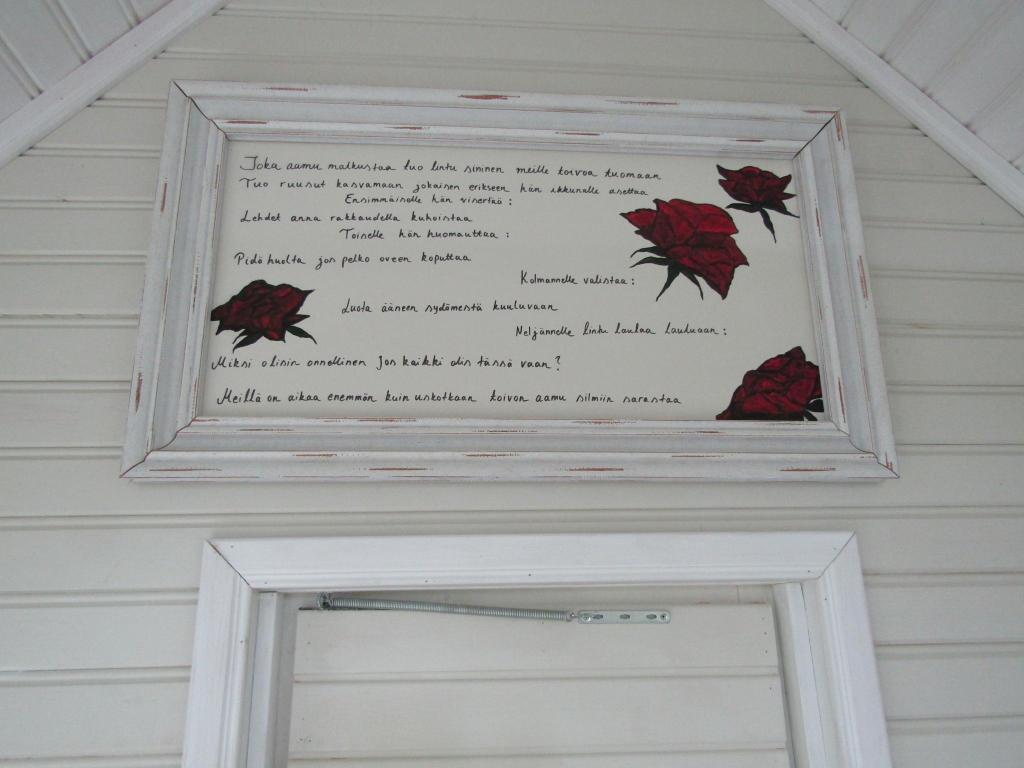 Joka aamu matkustaa tuo lintu sininen meille toivoa tuomaan
Tuo ruusut kasvamaan jokaisen erikseen hän ikkunalle asettaa
Ensimmäiselle hän visertää :
Lehdet anna rakkaudella kukoistaa
Toiselle hän huomauttaa :
Pidä huolta jos pelko oveen koputtaa
Kolmannelle valistaa :
Luota ääneen sydämestä kuuluvaan
Neljännelle lintu laulaa lauluaan :
Miksi olisin onnellinen jos kaikki olis tässä vaan ?
Meillä on aikaa enemmän kuin uskotkaan toivon aamu silmiin sarastaa